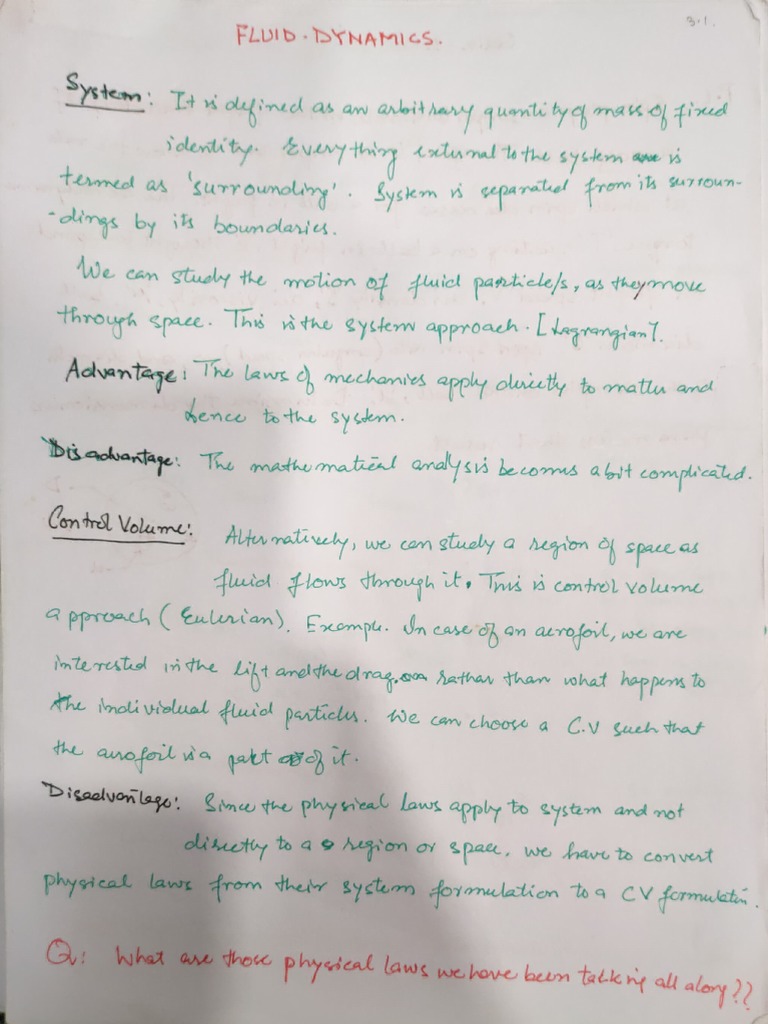 3.1.
FLUID . DYNAMICS.
System: It is defined as an arbitrary quantity of mass of fixed
identity. Everything external to the system is
termed as 'surrounding'. System is separated from its surroun-
-dings by its boundaries.
We can study the motion of fluid particle/s, as they move
through space. This is the system approach. [Lagrangian].
Advantage: The laws of mechanics apply directly to matter and
hence to the system.
Disadvantage: The mathematical analysis becomes a bit complicated.
Control Volume: Alternatively, we can study a region of space as
fluid flows through it. This is control volume
approach (Eulerian). Example. In case of an aerofoil, we are
interested in the lift and the drag. rather than what happens to
the individual fluid particles. We can choose a C.V such that
the aerofoil is a part of it.
Disadvantage: Since the physical laws apply to system and not
directly to a region or space, we have to convert
physical laws from their system formulation to a CV formulation.
Q: What are those physical laws we have been talking all along??